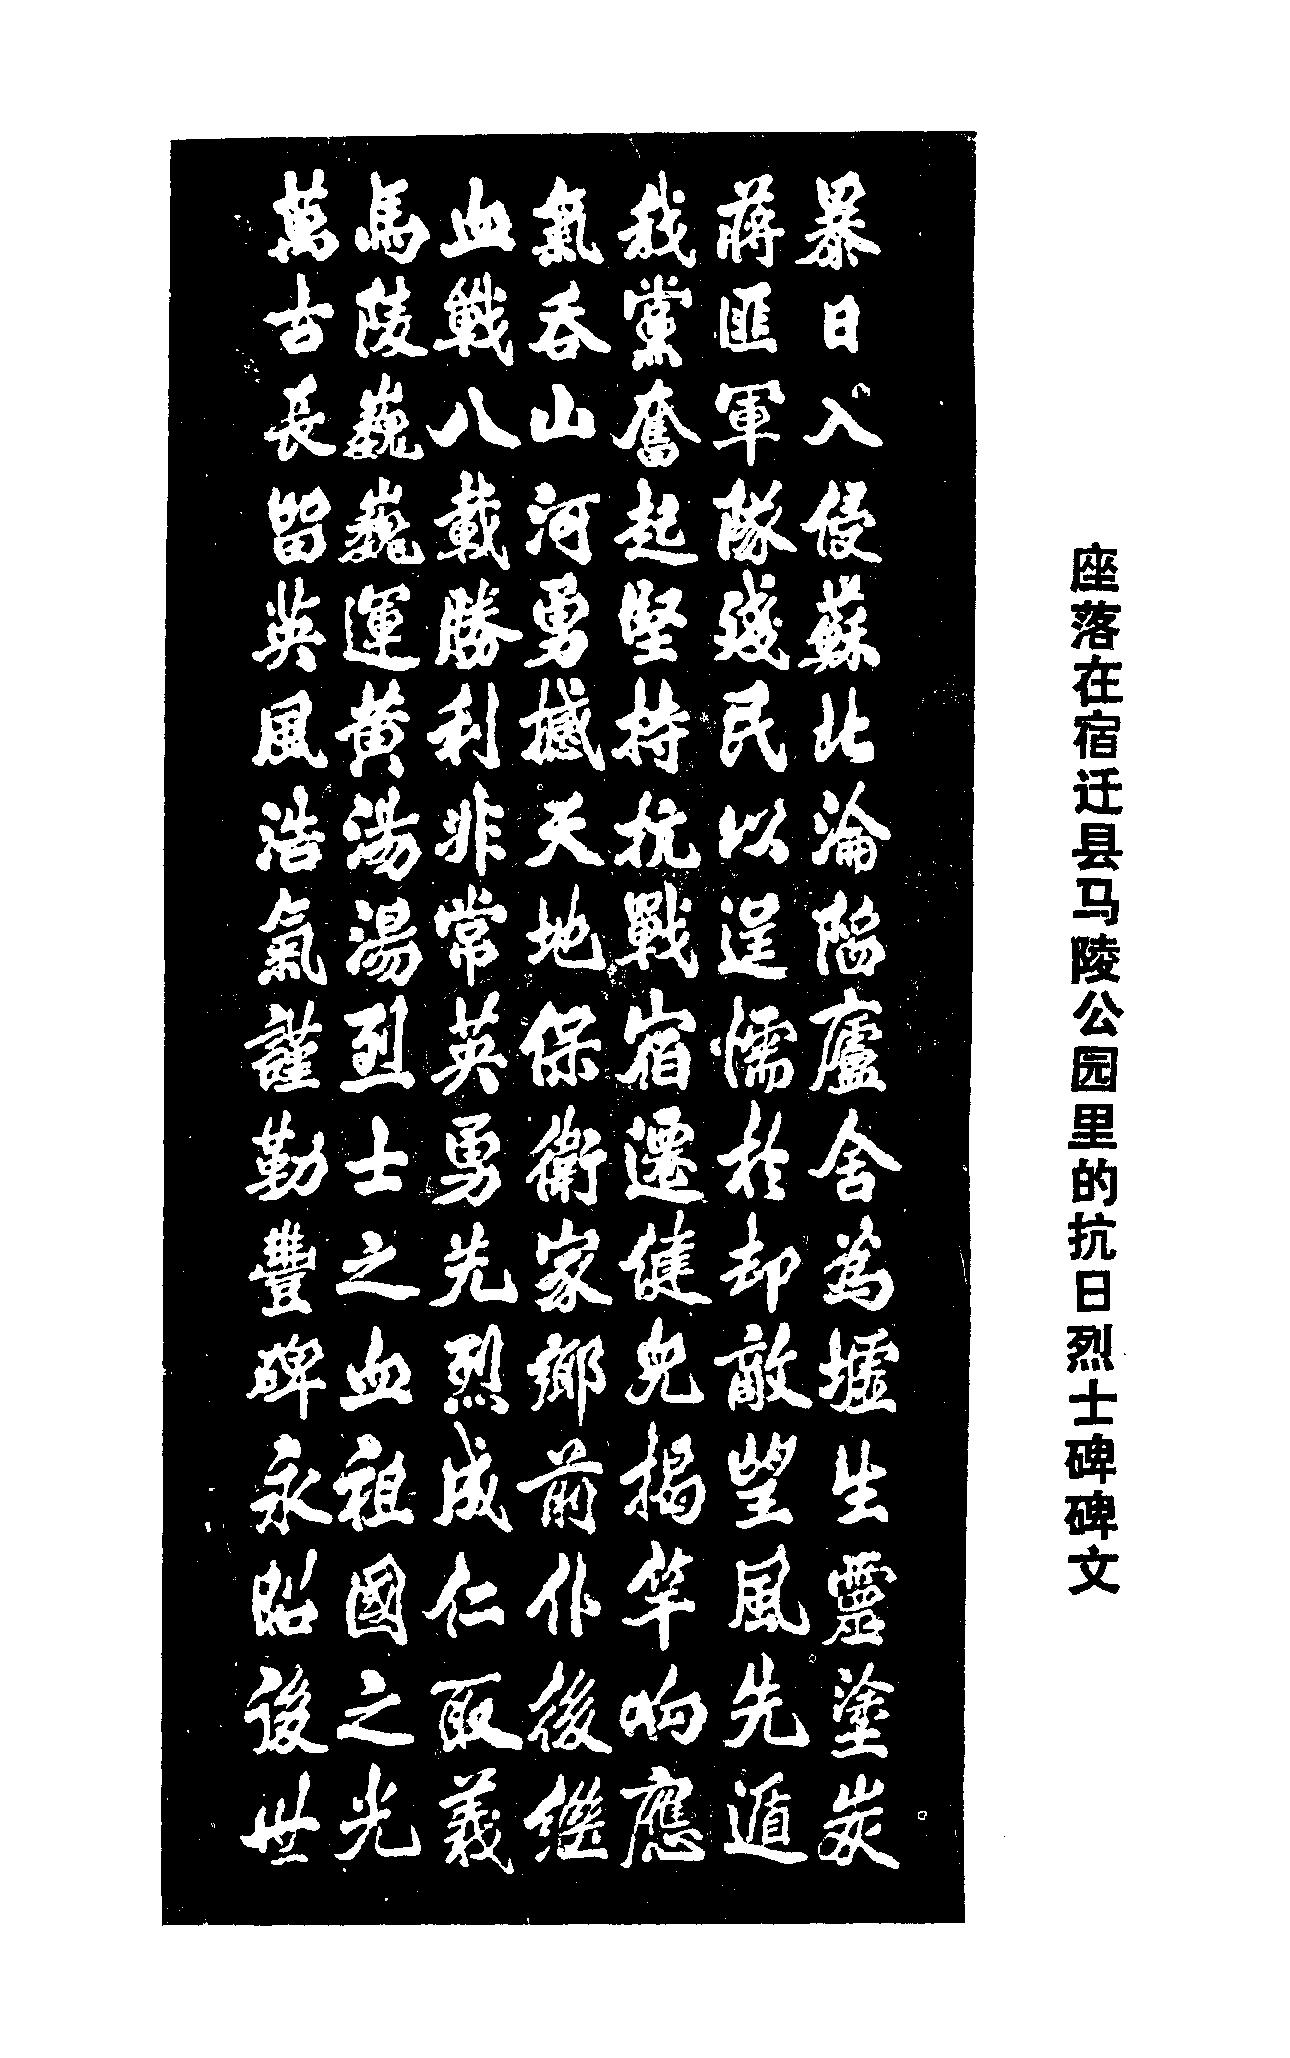 座落在宿迁县马陵公园里的抗日烈士碑碑文
暴日入侵蘇北淪陷廬舍為墟生靈塗炭
蔣匪軍隊殘民以逞懦於却敵望風先遁
我黨奮起堅持抗戰宿遷健兒揭竿响應
氣吞山河勇撼天地保衛家鄉前仆後繼
血戰八載勝利非常英勇先烈成仁取義
馬陵巍巍運黃湯湯烈士之血祖國之光
萬古長留英風浩氣謹勒豐碑永昭後世